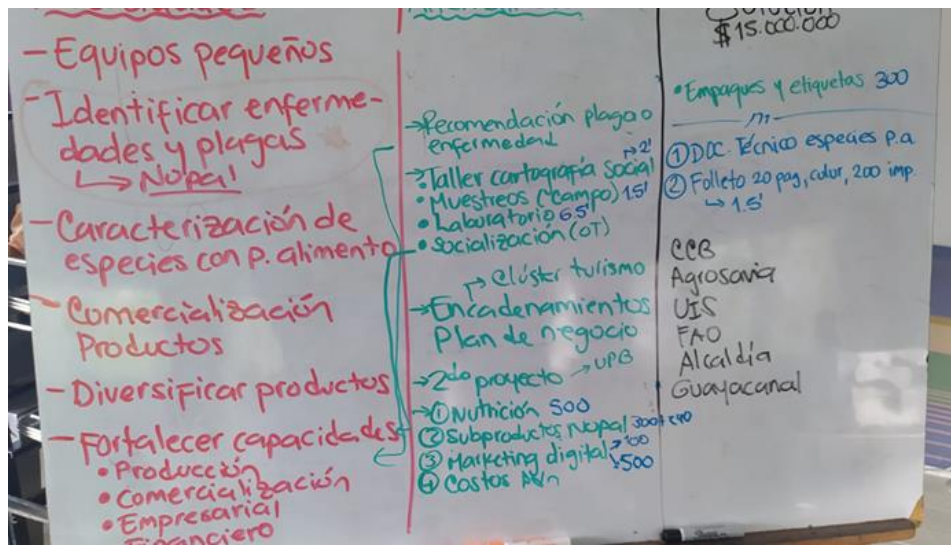 - Equipos pequeños
- Identificar enferme-
dades y plagas
↳ Nopal
- Caracterización de
especies con p. alimento
- Comercialización
Productos
- Diversificar productos
- Fortalecer capacidades
• Producción
• Comercialización
• Empresarial
Financiero
→ Recomendación plaga o
enfermedad
→ Taller cartografía social → 2'
• Muestreos (campo) 1.5'
• Laboratorio 6.5'
• Socialización (OT)
→ Clúster turismo
→ Encadenamientos
Plan de negocio
→ 2do proyecto → UPB
→ ① Nutrición 500
② Subproductos Nopal 300+
③ Marketing digital
500
④ Costos
$15.000.000
• Empaques y etiquetas 300
① Doc. Técnico especies p.a
② Folleto 20 pag, color, 200 imp.
↳ 1.5'
CCB
Agrosavia
UIS
FAO
Alcaldía
Guayacanal